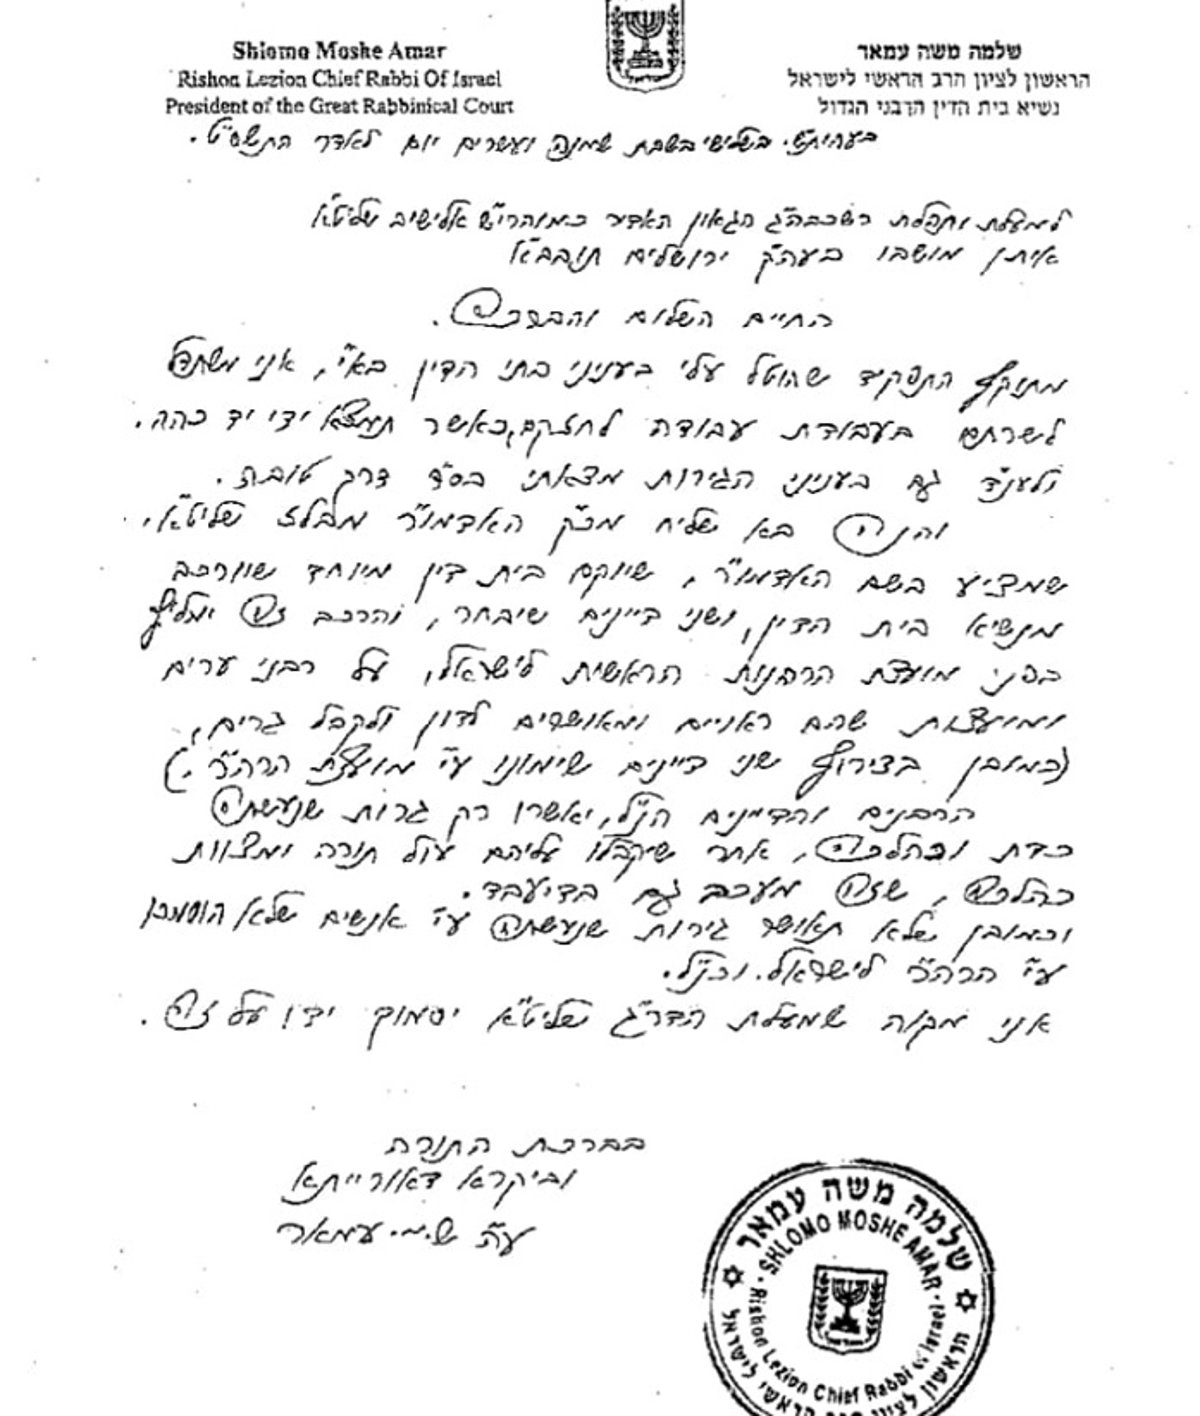 Shlomo Moshe Amar
Rishon Lezion Chief Rabbi Of Israel
President of the Great Rabbinical Court
שלמה משה עמאר
הראשון לציון הרב הראשי לישראל
נשיא בית הדין הרבני הגדול
בעהית"ש. בשלישי בשבת שמונה ועשרים יום לאדר התשס"ט.
למעלת ותהלת רשכבה"ג הגאון האדיר כמוהרי"ש אלישיב שליט"א
איתן מושבו בעה"ק ירושלים תובב"א
החיים השלום והברכה.
מתוקף התפקיד שהוטל עלי בעניני בתי הדין בא"י, אני משתדל
לשרתם בעבודת עבודה לחזקם, כאשר תמצא ידי יד כהה.
ולענ"ד גם בעניני הגירות מצאתי בס"ד דרך טובה.
והנה בא שליח מכ"ק האדמו"ר מבלז שליט"א,
שמציע בשם האדמו"ר, שיוקם בית דין מיוחד שיורכב
מנשיא בית הדין, ושני דיינים שיבחר, והרכב זה ימליץ
בפני מועצת הרבנות הראשית לישראל, על רבני ערים
ומועצות שהם ראויים ומאושרים לדון ולקבל גרים,
(כמובן בצירוף שני דיינים שימונו ע"י מועצת הרה"ר.)
הרבנים והדיינים הנ"ל, יאשרו רק גרות שנעשתה
כדת וכהלכה, אחר שיקבלו עליהם עול תורה ומצוות
כהלכה, שזה מעכב גם בדיעבד.
וכמובן שלא תאושר גירות שנעשתה ע"י אנשים שלא הוסמכו
ע"י הרה"ר לישראל. וכנ"ל.
אני מקוה שמעלת הדר"ג שליט"א יסמוך ידו על זה.
בברכת התורה
וביקרא דאורייתא
ע"ה ש.מ. עמאר
שלמה משה עמאר
SHLOMO MOSHE AMAR
Rishon Lezion Chief Rabbi of Israel
הראשון לציון הרב הראשי לישראל